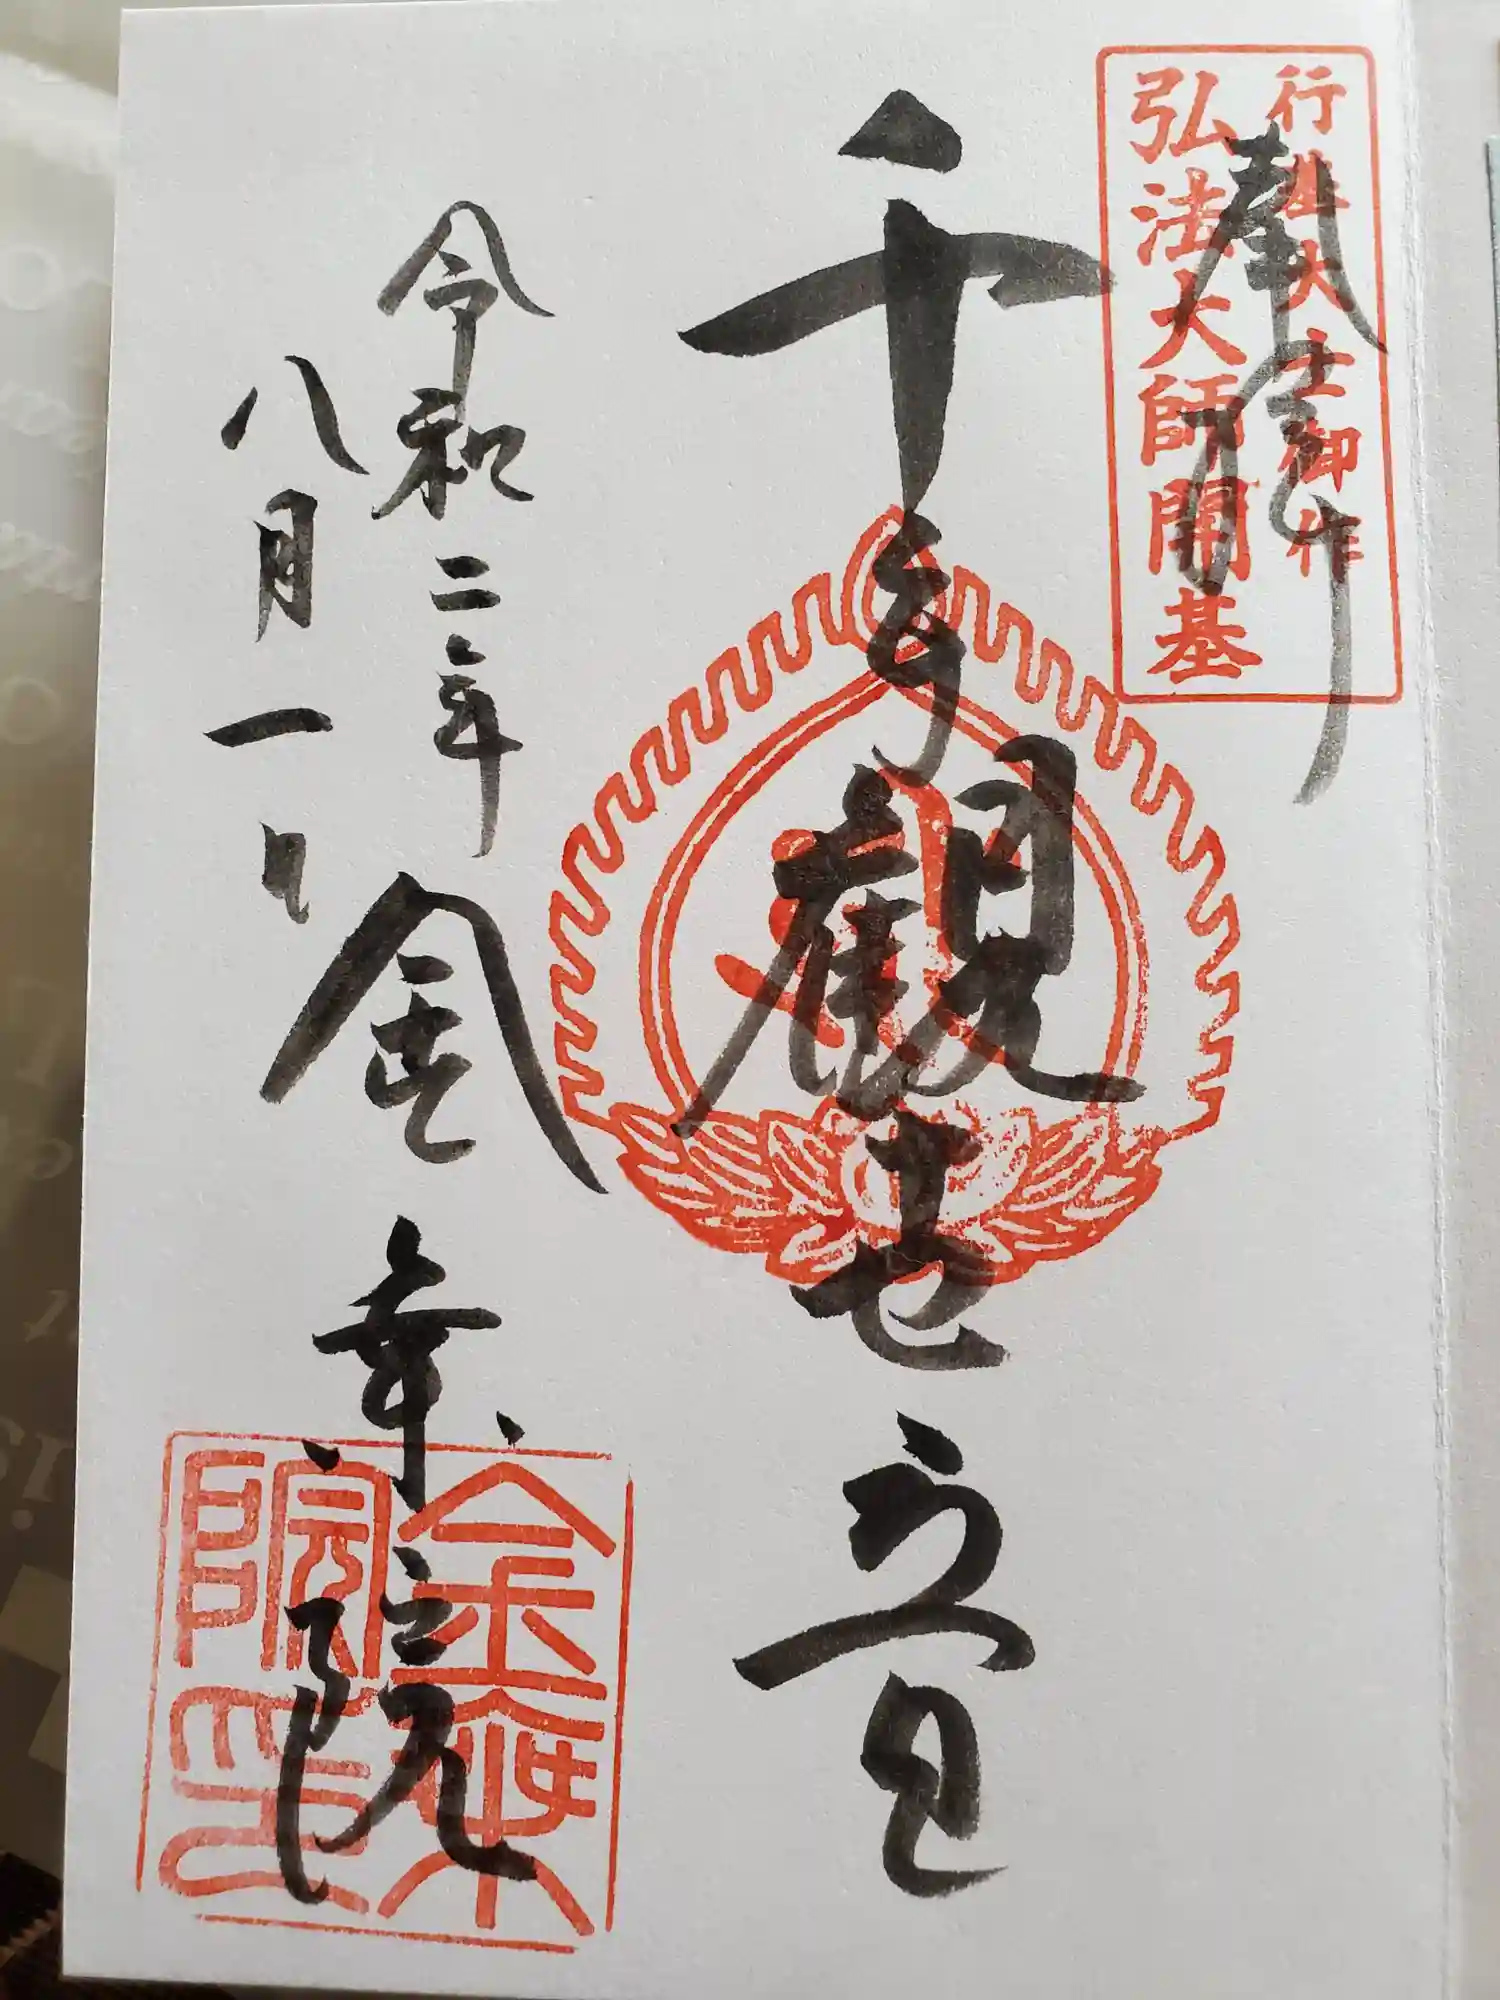 行基大士御作
弘法大師開基
奉拝
千手観世音
令和二年
八月一日
金乗院
金乗
院印